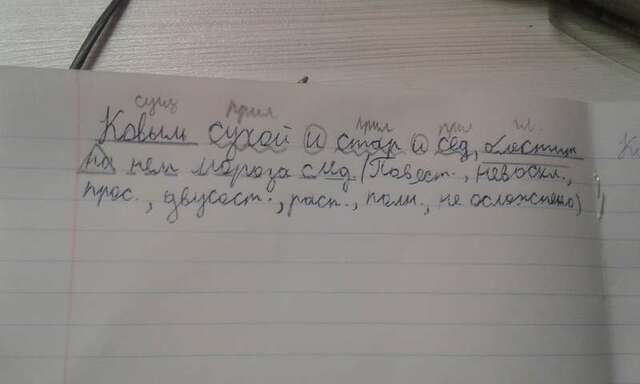 сущ прил прил прил гл.
Ковыль сухой и стар и сед, блестит
на нем мороза след (Повест., невоскл.,
прос., двусост., расп., полн., не осложнено)